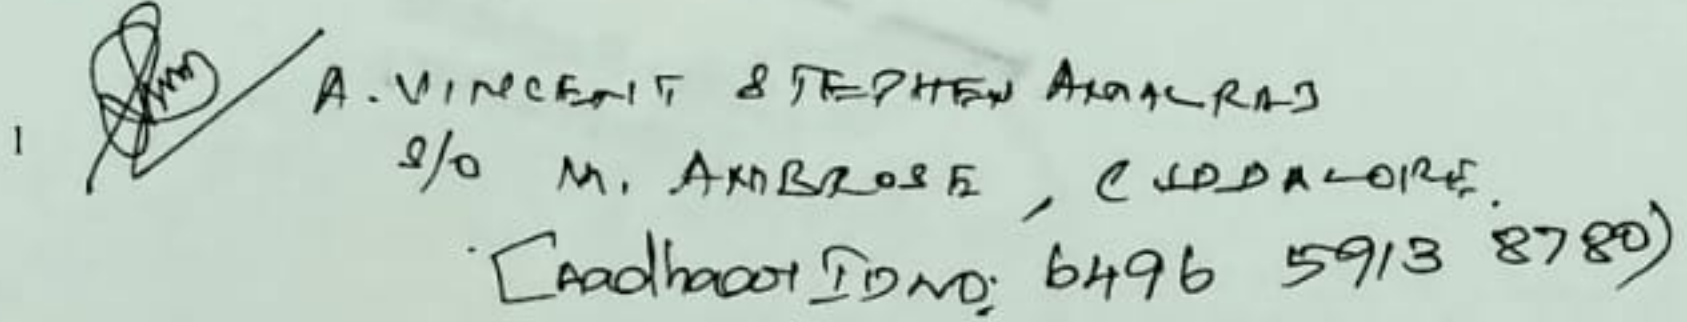 1 A. VINCENT STEPHEN AMALRAJ
S/O M. AMBROSE, CUDDALORE.
[Aadhaar ID NO: 6496 5913 8780)